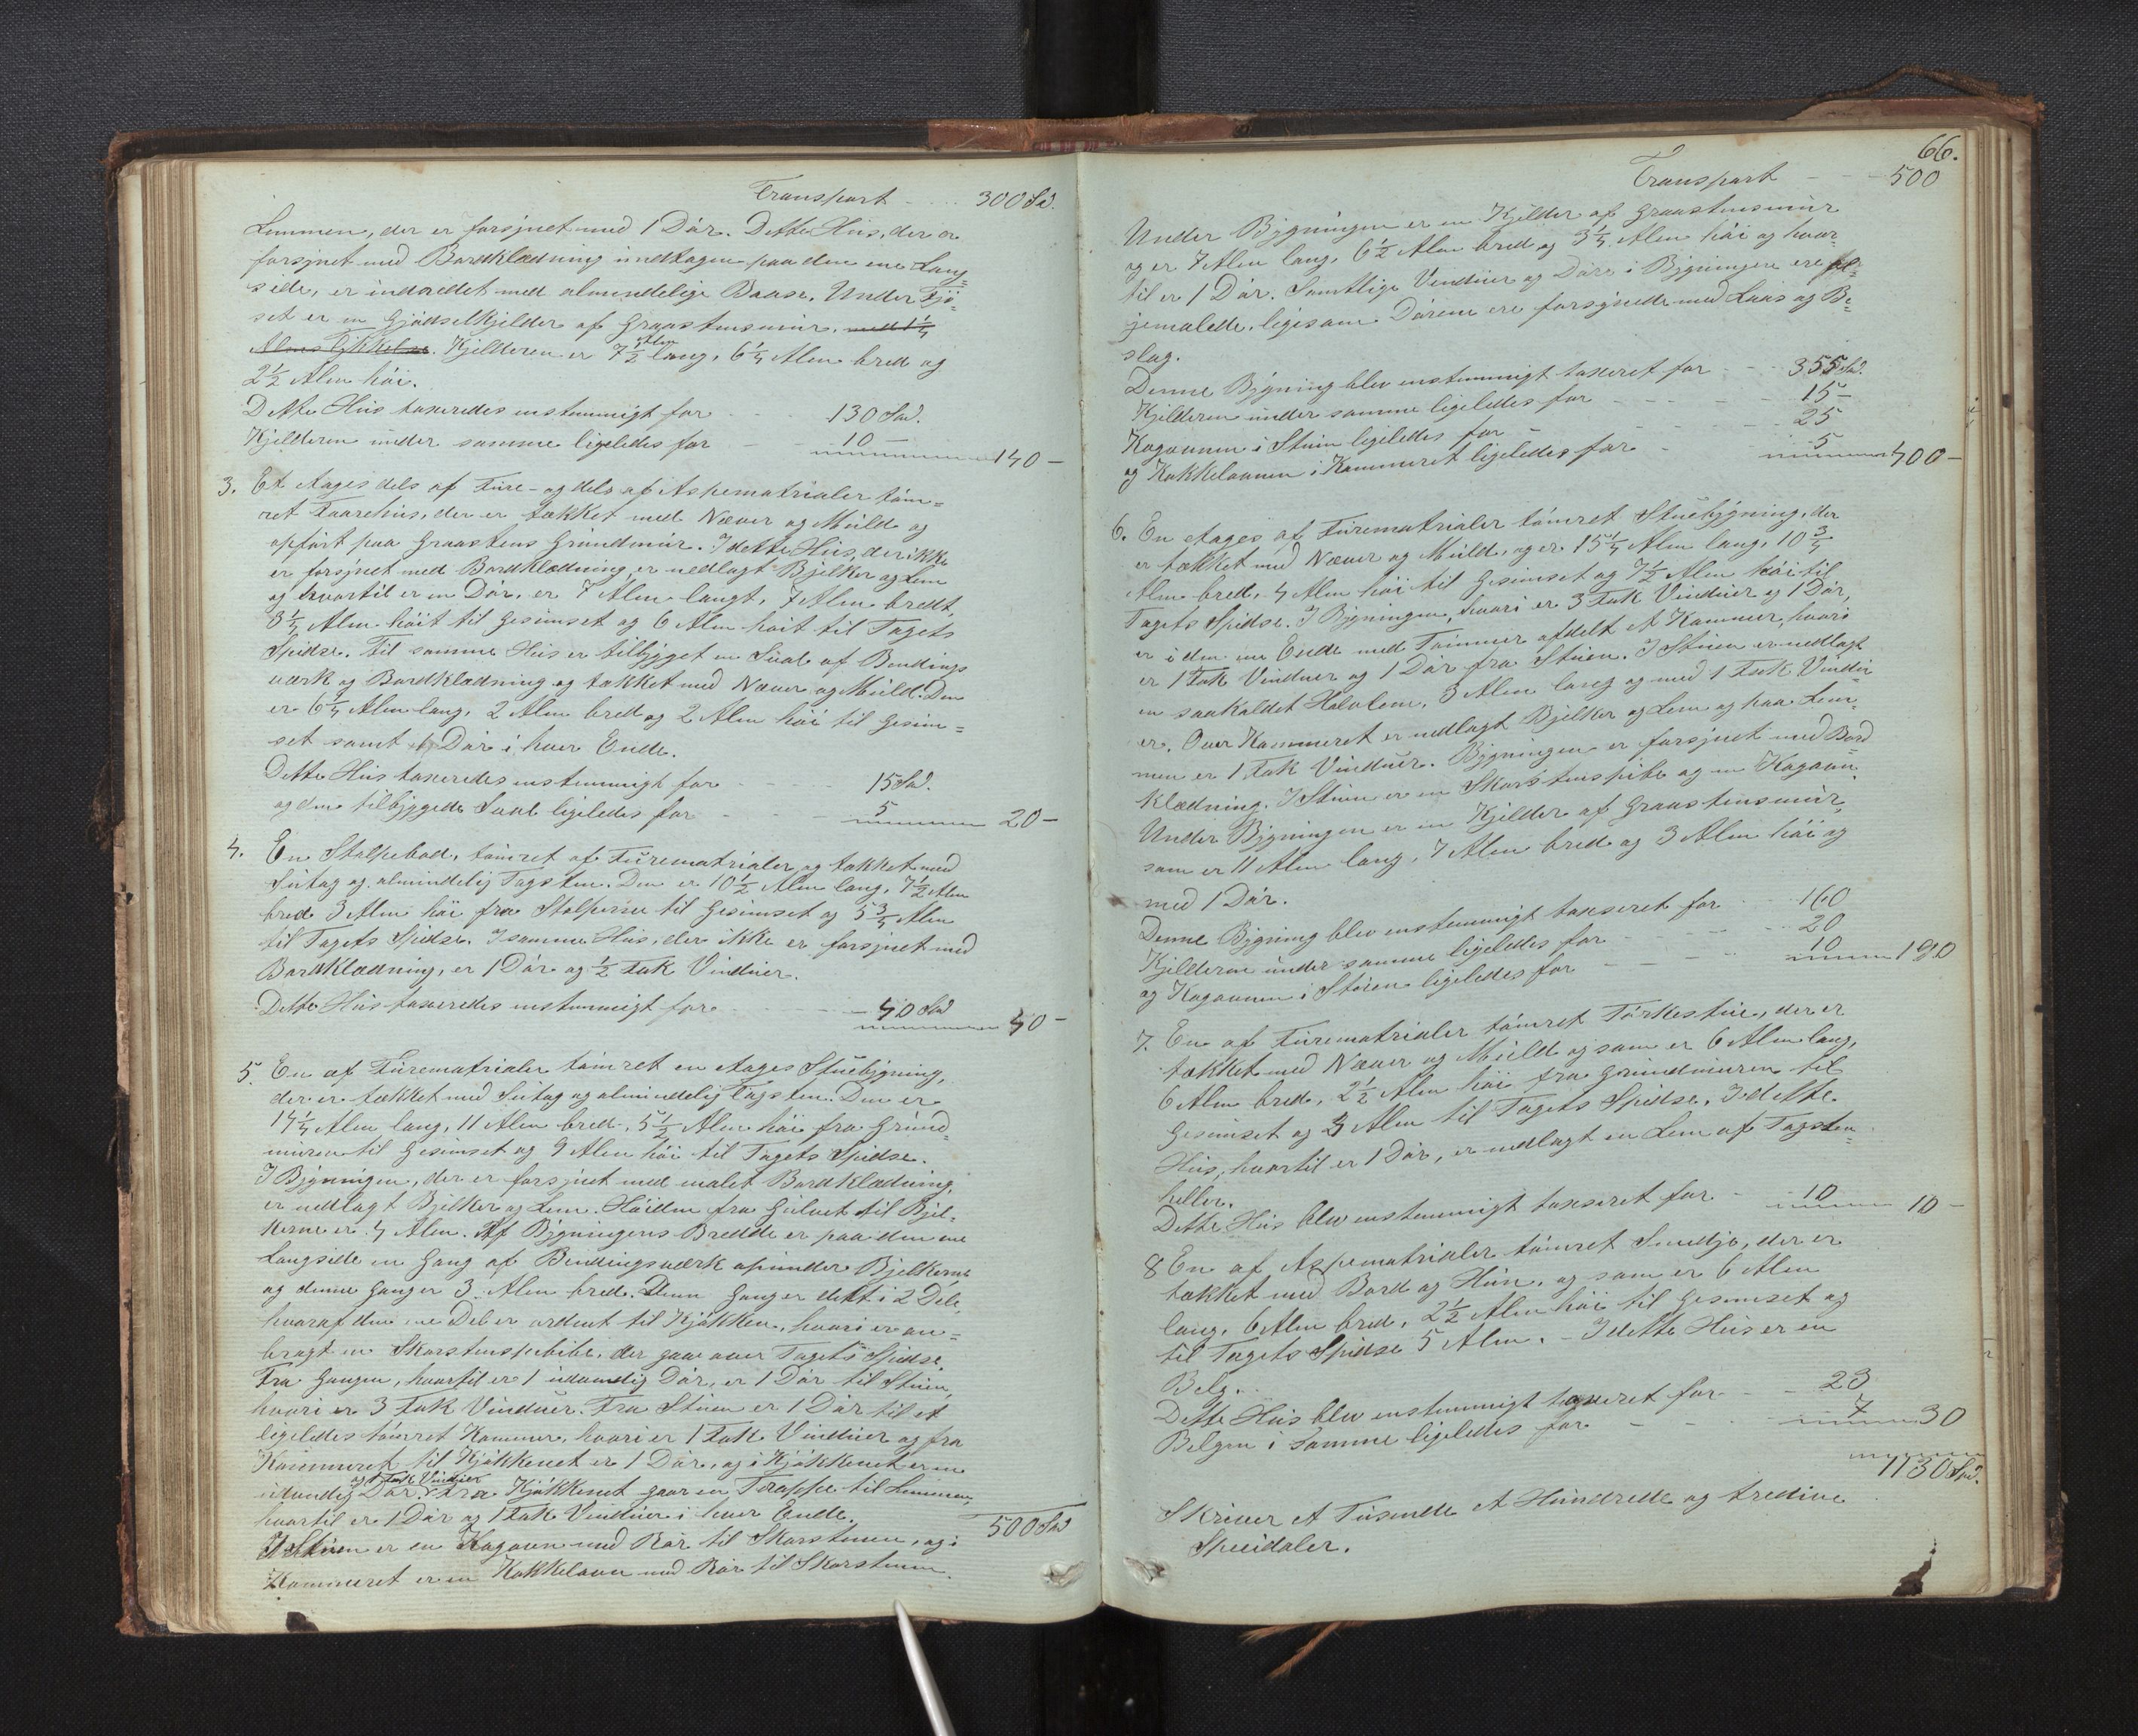 Transport - . . . 300 Spd.
Lemmen, der er forsynet med 1 Dör. Dette Huus, der er
forsynet med Bordklædning undtagen paa den ene Lang-
side, er indredet med almindelige Baase. Under Fjö-
set er en Gjödselkjelder af Graastensmuur, med 1 1/4
Alens Tykkelse. Kjelderen er 7 1/2 Alen lang, 6 1/4 Alen bred og
2 1/2 Alen höi.
Dette Huus taxeredes enstemmigt for - - 130 Spd.
Kjelderen under samme ligeledes for - - 10 - 140 -
3. Et Etages dels af Fure- og dels af Aspematrialer töm-
ret Faarehus, der er tækket med Næver og Muld og
opfört paa Graastens Grundmur. I dette Huus, der ikke
er forsynet med Bordklædning, er nedlagt Bjelker og Lem
og hvortil er en Dör, er 7 Alen langt, 7 Alen bredt,
3 1/4 Alen höit til Gesimset og 6 Alen höit til Tagets
Spidse. Til samme Huus er tilbygget en Sval af Bendings
værk og Bordklædning og tækket med Næver og Muld. Den
er 6 1/4 Alen lang, 2 Alen bred og 2 Alen höi til Gesim=
set samt 1 Dör i hver Ende.
Dette Huus taxeredes enstemmigt for - - - 15 Spd.
og den tilbyggede Sval ligeledes for - - 5 20 -
4. En Stolpebod, tömret af Furematrialer og tækket med
Sutag og almindelig Tagsten. Den er 10 1/2 Alen lang, 7 1/2 Alen
bred 3 Alen höi fra Stolperne til Gesimset og 5 3/4 Alen
til Tagets Spidse. I samme Huus, der ikke er forsynet med
Bordklædning, er 1 Dör og 1/2 Fak Vinduer.
Dette Huus taxeredes enstemmigt for - - - 40 Spd 40 -
5. En af Furematrialer tömret en Etages Stuebygning,
der er tækket med Sutag og almindelig Tagsten. Den er
14 1/4 Alen lang, 11 Alen bred, 5 1/2 Alen höi fra Grund-
muren til Gesimset og 9 Alen höi til Tagets Spidse.
I Bygningen, der er forsynet med malet Bordklædning,
er nedlagt Bjelker og Lem. Höiden fra Gulvet til Bjel-
kerne er 4 Alen. Af Bygningens Bredde er paa den ene
Langside en Gang af Bendingsværk opunder Bjelkerne
og denne Gang er 3 Alen bred. Denn Gang er delt i 2 Dele,
hvoraf den ene Del er ordent til Kjökken, hvori er an=
bragt en Skorstenspibe, der gaar over Tagets Spidse.
Fra Gangen, hvortil er 1 udvendig Dör, er 1 Dör til Stuen,
hvori er 3 Fak Vinduer. Fra Stuen er 1 Dör til et
ligeledes tömret Kammer, hvori er 1 Fak Vinduer og fra
Kammeret til Kjökkenet er 1 Dör, og i Kjökkenet er en
udvendig Dör og 1 Fak Vinduer. Fra Kjökkenet gaar en Trappe til Lemmen,
hvortil er 1 Dör og 1 Fak Vinduer i hver Ende.
I Stuen er en Kogovn med Rör til Skorstenen, og i 500 Spd
Kammeret er en Kakkelovn med Rör til Skorstenen.
66.
Transport - - - 500
Under Bygningen er en Kjelder af Graastensmuur
og er 7 Alen lang, 6 1/2 Alen bred og 3 1/4 Alen höi og hvor-
til er 1 Dör. Samtlige Vinduer og Döre i Bygningen ere ol-
jemalede, ligesom Dörene ere forsynede med Laas og Be-
slag.
Denne Bygning blev enstemmigt taxeret for - - 355 Spd.
Kjelderen under samme ligeledes for - - - 15 -
Kogovnen i Stuen ligeledes for - - - 25
og Kakkelovnen i Kammeret ligeledes for - 5 400 -
6. En Etages af Furematrialer tömret Stuebygning, der
er tækket med Næver og Muld, og er 15 1/4 Alen lang, 10 3/4
Alen bred, 4 Alen höi til Gesimset og 7 1/2 Alen höi til
Tagets Spidse. I Bygningen, hvori er 3 Fak Vinduer og 1 Dör,
er i den ene Ende med Tömmer afdelt et Kammer, hvori
er 1 Fak Vinduer og 1 Dör fra Stuen. I Stuen er nedlagt
en saakaldet Halvlem, 3 Alen lang og med 1 Fak Vindu-
er. Over Kammeret er nedlagt Bjelker og Lem og paa Lem-
men er 1 Fak Vinduer. Bygningen er forsynet med Bord
klædning. I Stuen er en Skorstenspibe og en Kogovn.
Under Bygningen er en Kjelder af Graastensmuur,
som er 11 Alen lang, 7 Alen bred og 3 Alen höi og
med 1 Dör.
Denne Bygning blev enstemmigt taxeret for - - 160
Kjelderne under samme ligeledes for - - - 20
og Kogovnen i Stuen ligeledes for - - - 10 190
7. En af Furematrialer tömret Törkestue, der er
tækket med Næver og Muld og som er 6 Alen lang,
6 Alen bred, 2 1/2 Alen höi fra Grundmuren til
Gesimset og 3 Alen til Tagets Spidse. I dette
Huus, hvortil er 1 Dör, er nedlagt en Lem af Tagsten-
heller.
Dette Huus blev enstemmigt taxeret for - 10 10 -
8 En af Aspematrialer tömret Smedje, der er
tækket med Bord og Hun, og som er 6 Alen
lang, 6 Alen bred, 2 1/2 Alen höi til Gesimset og
til Tagets Spidse 5 Alen. - I dette Huus er en
Belg.
Dette Huus blev enstemmigt taxeret for - - 23
Belgen i samme ligeledes for - - - 7 30
1130 Spd.
Skriver Et Tusende Et Hundrede og tredive
Speidaler.